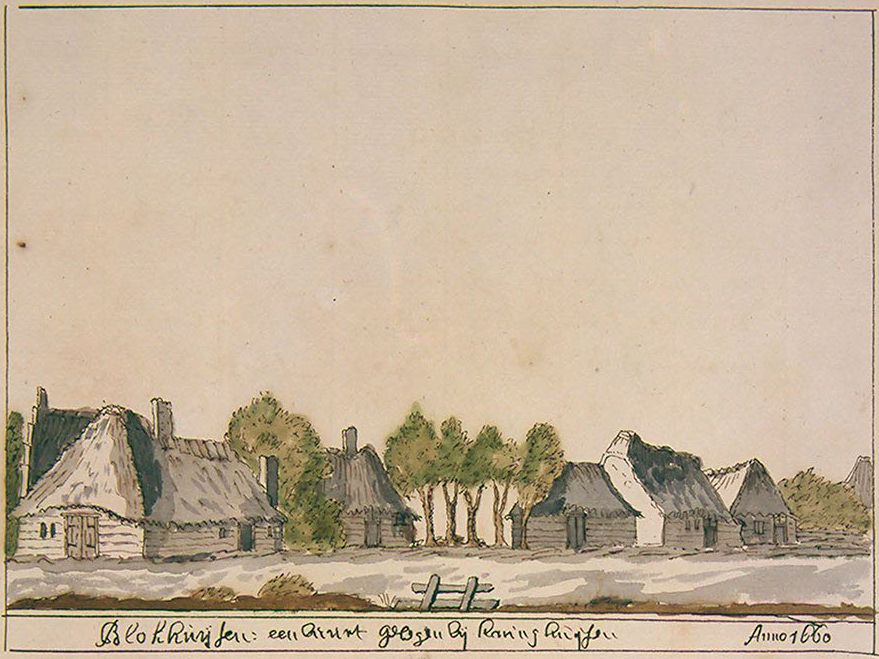 Blokhuijsen: een buurt gelegen bij haringhuijsen Anno 1660